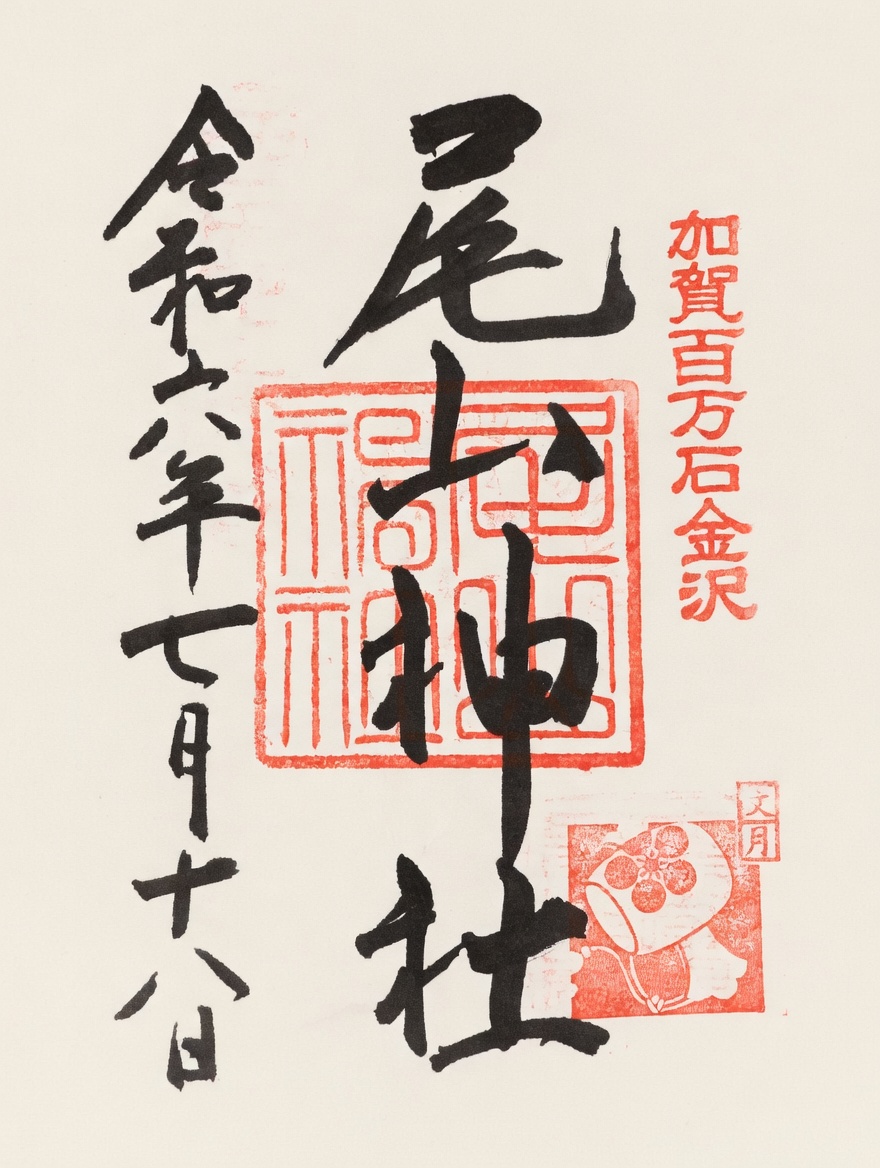 加賀百万石金沢
文月
尾山神社
尾山神社
令和六年七月十八日